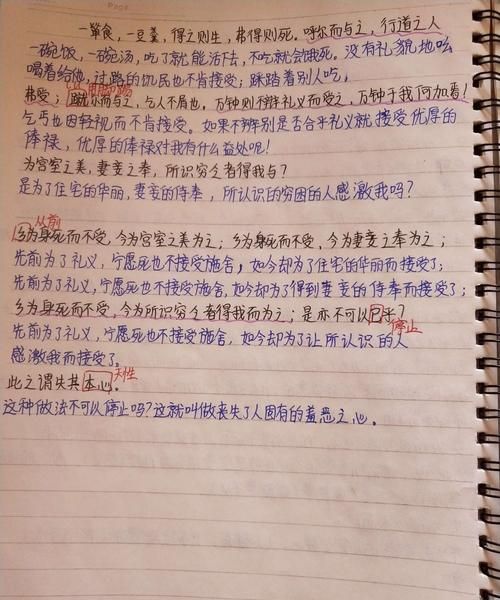 Page
一箪食，一豆羹，得之则生，弗得则死。呼尔而与之，行道之人
一碗饭，一碗汤，吃了就能活下去，不吃就会饿死。没有礼貌地吆
喝着给他，过路的饥民也不肯接受；踩踏着别人吃，
用脚踢
弗受；蹴尔而与之，乞人不屑也，万钟则不辨礼义而受之，万钟于我何加焉！
乞丐也因轻视而不肯接受。如果不辨别是否合乎礼义就接受优厚的
俸禄，优厚的俸禄对我有什么益处呢！
为宫室之美，妻妾之奉，所识穷乏者得我与？
是为了住宅的华丽，妻妾的侍奉，所认识的穷困的人感激我吗？
从前
乡为身死而不受，今为宫室之美为之；乡为身死而不受，今为妻妾之奉为之；
先前为了礼义，宁愿死也不接受施舍，如今却为了住宅的华丽而接受了；
先前为了礼义，宁愿死也不接受施舍，如今却为了得到妻妾的侍奉而接受了；
乡为身死而不受，今为所识穷乏者得我而为之；是亦不可以已乎？
停止
先前为了礼义，宁愿死也不接受施舍，如今却为了让所认识的人
感激我而接受了。
此之谓失其本心。天性
这种做法不可以停止吗？这就叫做丧失了人固有的羞恶之心。